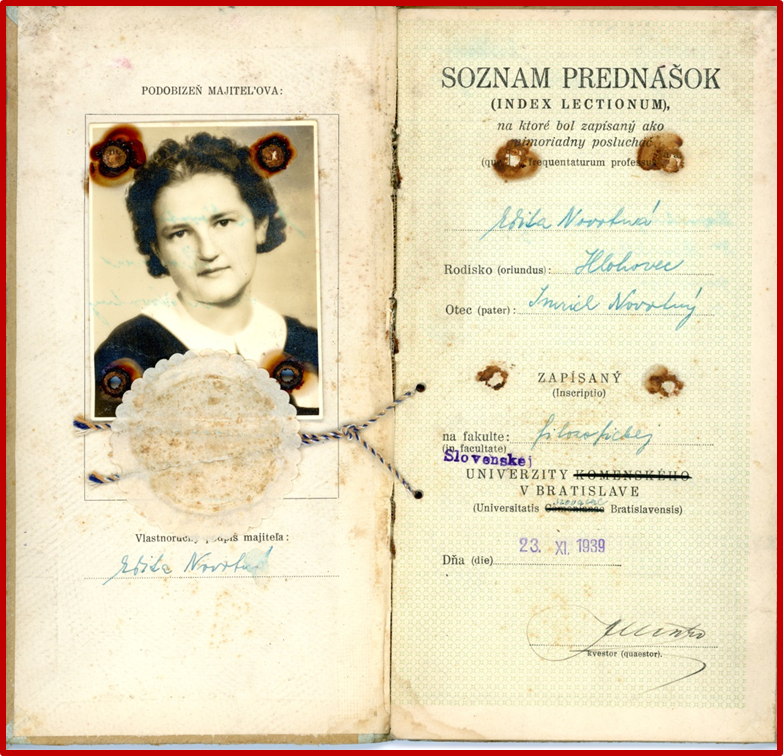 PODOBIZEŇ MAJITEĽOVA:
Vlastnoručný podpis majiteľa:
Edita Novotná
SOZNAM PREDNÁŠOK
(INDEX LECTIONUM),
na ktoré bol zapísaný ako
mimoriadny poslucháč
frequentaturum
Edita Novotná
Rodisko (oriundus): Hlohovec
Otec (pater): Imrich Novotný
ZAPÍSANÝ
(Inscriptio)
na fakulte: filozofickej
(in facultate)
Slovenskej
UNIVERZITY KOMENSKÉHO
V BRATISLAVE
(Universitatis Comenianae Bratislavensis)
Dňa (die) 23. XI. 1939
kvestor (quaestor).